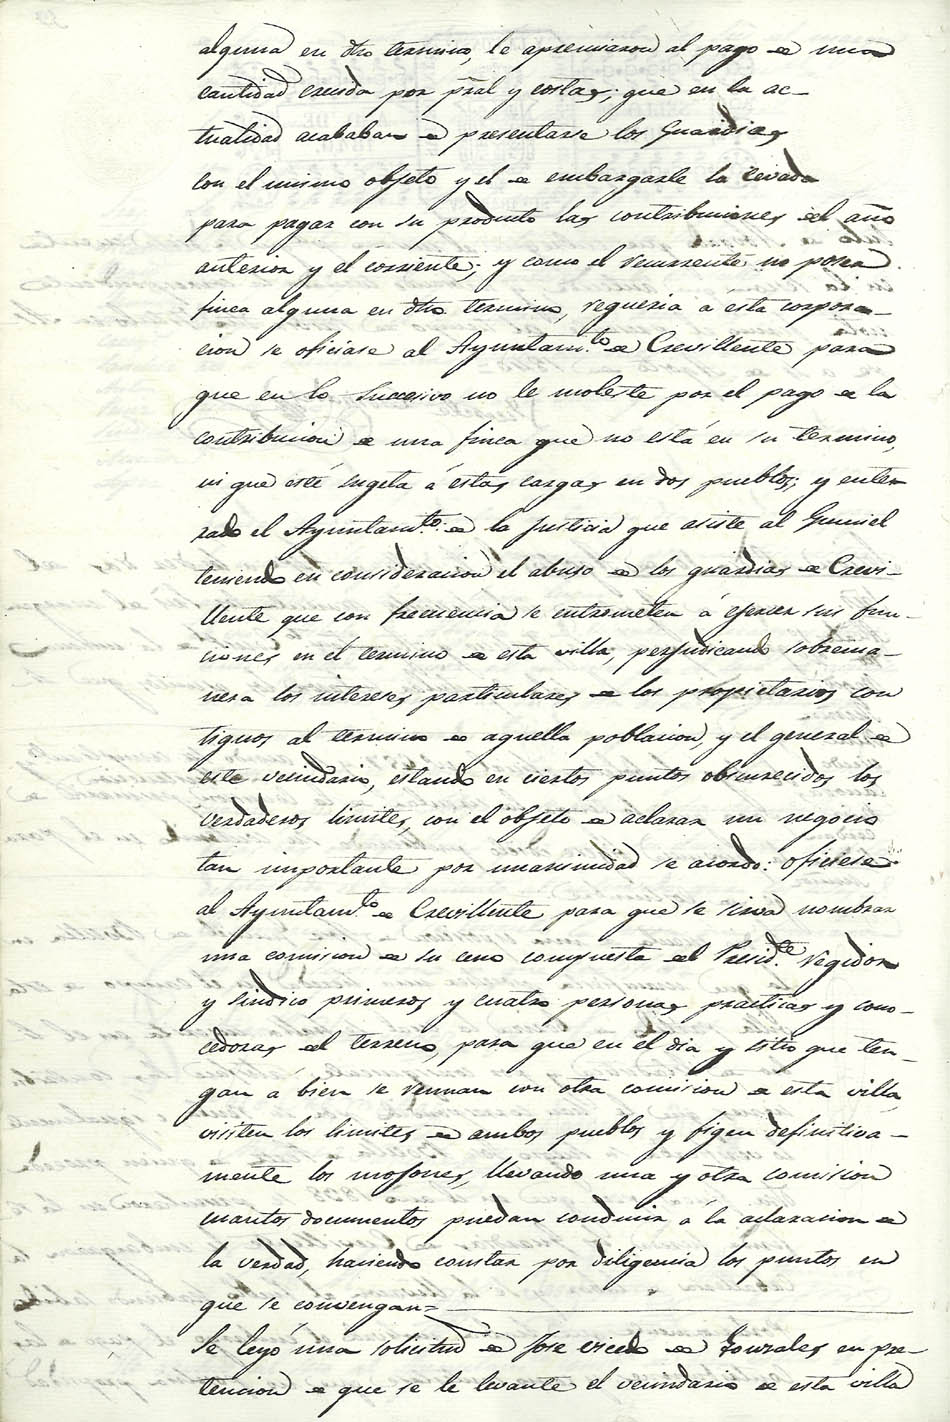 alguna en dho termino, le apremiaron al pago de una
cantidad crecida por pral y costas; que en la ac-
tualidad acababan de presentarse los Guardias
con el mismo objeto y el de embargarle la cevada
para pagar con su producto las contribuciones del año
anterior y el corriente; y como el recurrente no posea
finca alguna en dho termino, requeria a esta corpora-
cion se oficiase al Ayuntam.to de Crevillente para
que en lo sucesivo no le moleste por el pago de la
contribucion de una finca que no está en su termino,
ni que esté sugeta á estas cargas en dos pueblos; y ente-
rado el Ayuntam.to de la justicia que asiste al Gumiel
teniendo en consideracion el abuso de los guardias de Crevi-
llente que con frecuencia se entrometen á ejercer sus fun-
ciones en el termino de esta villa, perjudicando sobrema-
nera los intereses particulares de los propietarios con
tiguos al termino de aquella poblacion, y el general de
este vecindario, estando en ciertos puntos obscurecidos los
verdaderos limites, con el objeto de aclarar un negocio
tan importante por unanimidad se acordo: oficiese
al Ayuntam.to de Crevillente para que se sirva nombrar
una comision de su ceno compuesta del Presid.te Regidor
y Sindico primeros y cuatro personas practicas y cono-
cedoras del terreno, para que en el dia y sitio que ten-
gan á bien se reunan con otra comision de esta villa,
visiten los limites de ambos pueblos y figen definitiva-
mente los mojones, llevando una y otra comision
cuantos documentos puedan conducir á la aclaracion de
la verdad, haciendo constar por diligencia los puntos en
que se convengan=
Se leyó una solicitud de Jose vicedo de Gonzales en pre-
tencion de que se le levante el vecindario de esta villa